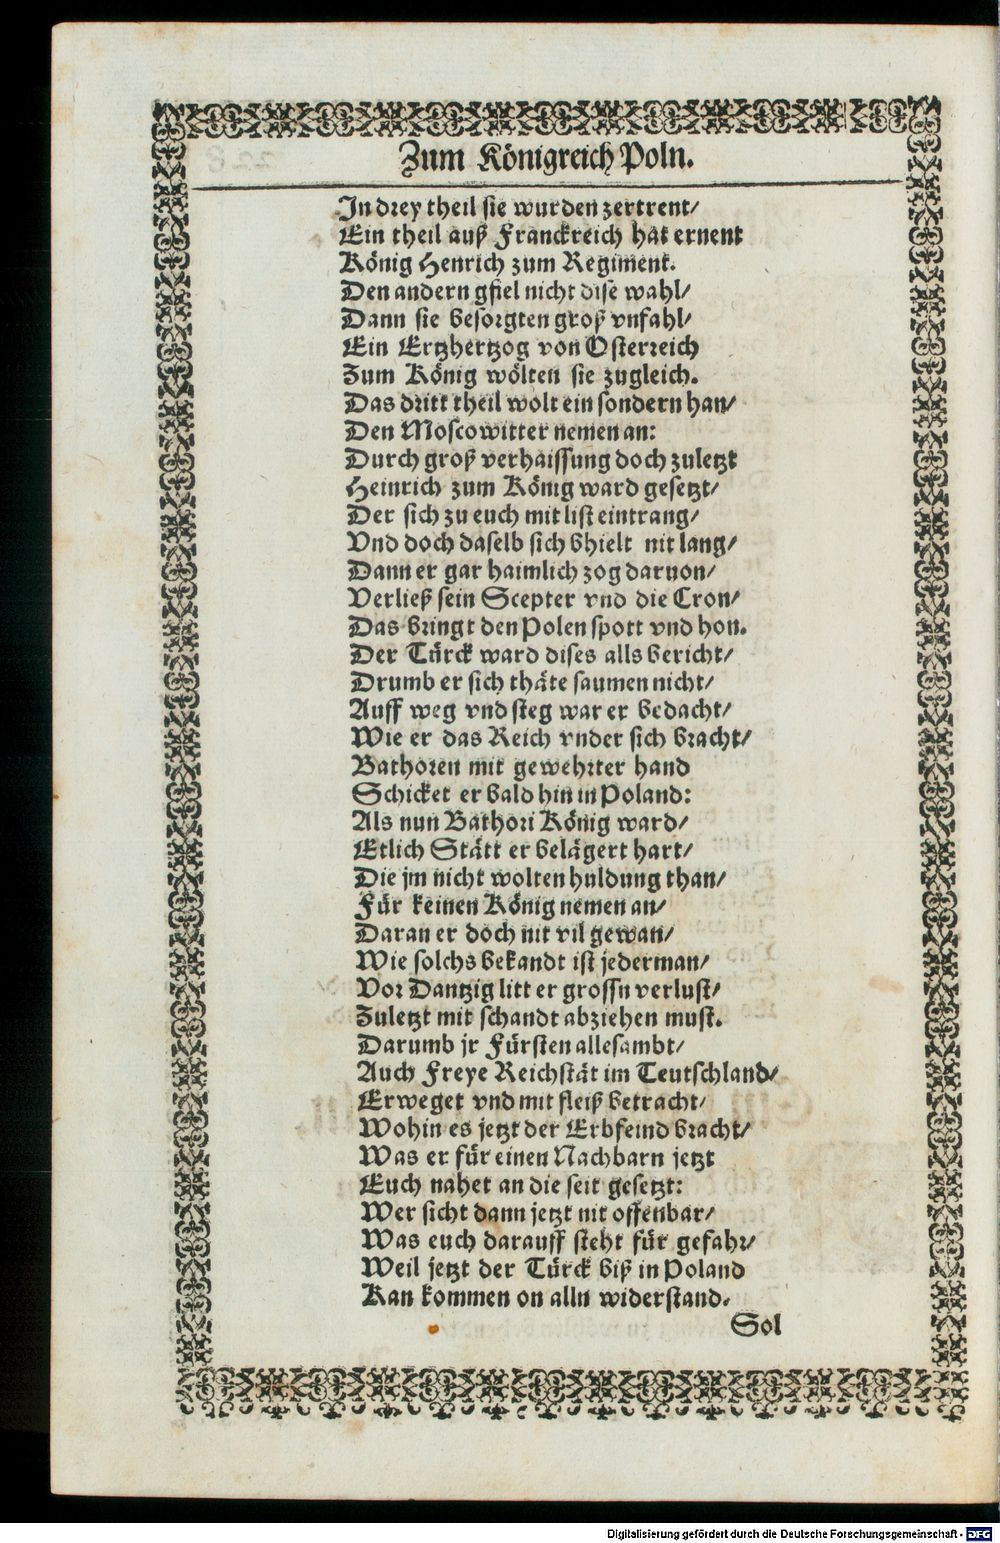 Zum Königreich Poln.
In drey theil sie wurden zertrent/
Ein theil auß Franckreich hat ernent
König Henrich zum Regiment.
Den andern gfiel nicht dise wahl/
Dann sie besorgten groß vnfahl/
Ein Ertzhertzog von Osterreich
Zum König wölten sie zugleich.
Das dritt theil wolt ein sondern han/
Den Moscowitter nemen an:
Durch groß verhaissung doch zuletzt
Heinrich zum König ward gesetzt/
Der sich zu euch mit list eintrang/
Vnd doch daselb sich bhielt nit lang/
Dann er gar haimlich zog daruon/
Verließ sein Scepter vnd die Cron/
Das bringt den Polen spott vnd hon.
Der Türck ward dises alls bericht/
Drumb er sich thäte saumen nicht/
Auff weg vnd steg war er bedacht/
Wie er das Reich vnder sich bracht/
Bathoren mit gewehrter hand
Schicket er bald hin in Poland:
Als nun Bathori König ward/
Etlich Stätt er belägert hart/
Die jm nicht wolten huldung than/
Für keinen König nemen an/
Daran er doch nit vil gewan/
Wie solchs bekandt ist jederman/
Vor Dantzig litt er grossn verlust/
Zuletzt mit schandt abziehen must.
Darumb jr Fürsten allesambt/
Auch Freye Reichstät im Teutschland/
Erweget vnd mit fleiß betracht/
Wohin es jetzt der Erbfeind bracht/
Was er für einen Nachbarn jetzt
Euch nahet an die seit gesetzt:
Wer sicht dann jetzt nit offenbar/
Was euch darauff steht für gefahr/
Weil jetzt der Türck biß in Poland
Kan kommen on alln widerstand.
Sol
Digitalisierung gefördert durch die Deutsche Forschungsgemeinschaft - DFG